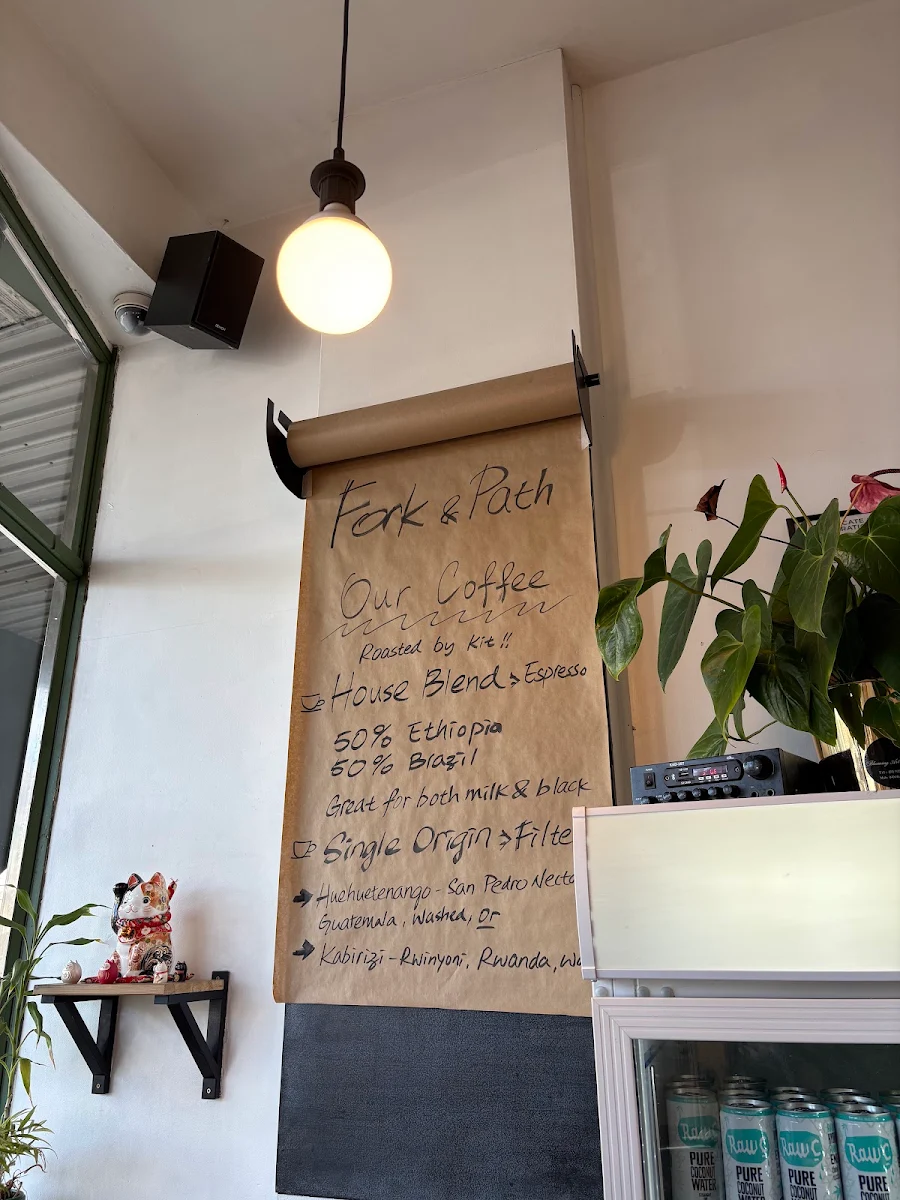 Fork & Path
Our Coffee
Roasted by Kit!!
House Blend → Espresso
50% Ethiopia
50% Brazil
Great for both milk & black
Single Origin → Filte
→ Huehuetenango - San Pedro Necta
Guatemala, Washed, or
→ Kabirizi - Rwinyoni, Rwanda, Wa
RawC
PURE
COCONUT
WATER
RawC
PURE
COCONUT
WATER
RawC
PURE
COCONUT
WATER
RawC
PURE
COCONUT
WATER